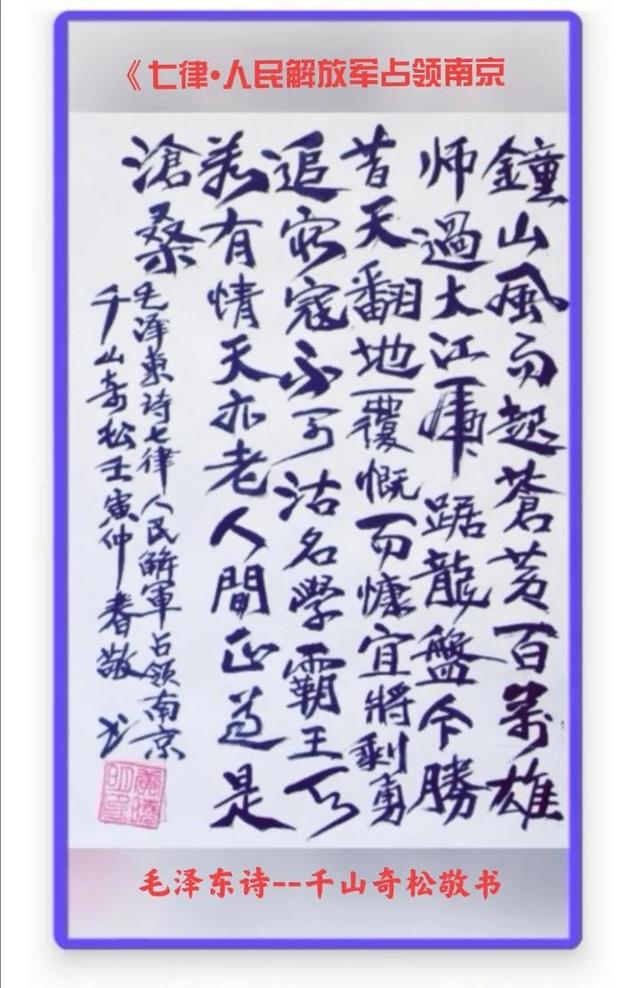 《七律·人民解放军占领南京
鐘山風雨起蒼黄百萬雄
师過大江虎踞龍盤今勝
昔天翻地覆慨而慷宜將剩勇
追窮寇不可沽名學霸王天
若有情天亦老人間正道是
滄桑
毛泽東诗七律人民解軍占领南京
千山奇松壬寅仲春敬书
毛泽东诗--千山奇松敬书